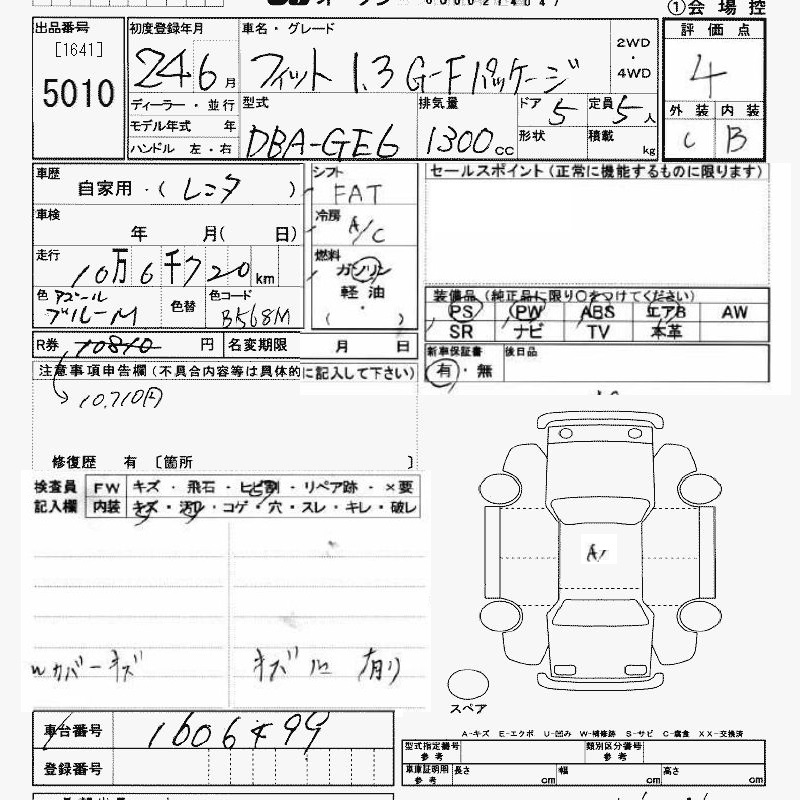 ①会場控
出品番号 初度登録年月 車名・グレード 評価点
[1641] 24 6 月 フィット 1.3 G-Fパッケージ 2WD
・
5010 4WD 4
ディーラー・並行 型式 排気量 ドア 5 定員 5 人 外装 内装
モデル年式 年 DBA-GE6 1300 cc 形状 積載 C B
ハンドル 左・右 kg
車歴 シフト セールスポイント(正常に機能するものに限ります)
自家用・( レンタ ) FAT
車検 冷房
年 月( 日) A/C
走行 燃料
10万6千720km ガソリン
色 アズール 色替 色コード 軽油 装備品(純正品に限り○をつけてください)
ブルーM B568M ・ PS PW ABS エアB AW
( ) SR ナビ TV 本革
R券 10810 円 名変期限 月 日 新車保証書 後日品
注意事項申告欄(不具合内容等は具体的に記入して下さい) 有・無
10,710円
修復歴 有 〔箇所 〕
検査員 FW キズ・飛石・ヒビ割・リペア跡・×要
記入欄 内装 キズ・汚れ・コゲ・穴・スレ・キレ・破レ
A1
カバーキズ キズ 有り
スペア
車台番号 1606499
登録番号
A-キズ E-エクボ U-凹み W-補修跡 S-サビ C-腐食 XX-交換済
型式指定番号 類別区分番号
参考 参考
車庫証明用 長さ 幅 高さ
参考 cm cm cm